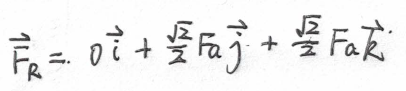 $\vec{F}_R = 0\vec{i} + \frac{\sqrt{2}}{2} Fa\vec{j} + \frac{\sqrt{2}}{2} Fa\vec{k}$